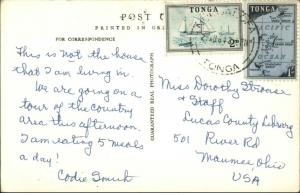 POST C
PRINTED IN GR
FOR CORRESPONDENCE
This is not the house
that I am living in.
We are going on a
tour of the country
area this afternoon.
I am eating 5 meals
a day!
Codie Smith
GUARANTEED REAL PHOTOGRAPH
TONGA
2D
TONGA
TONGA
PACIFIC
OCEAN
Miss Dorothy Strouse
& Staff
Lucas County Library
501 River Rd
Maumee Ohio
USA